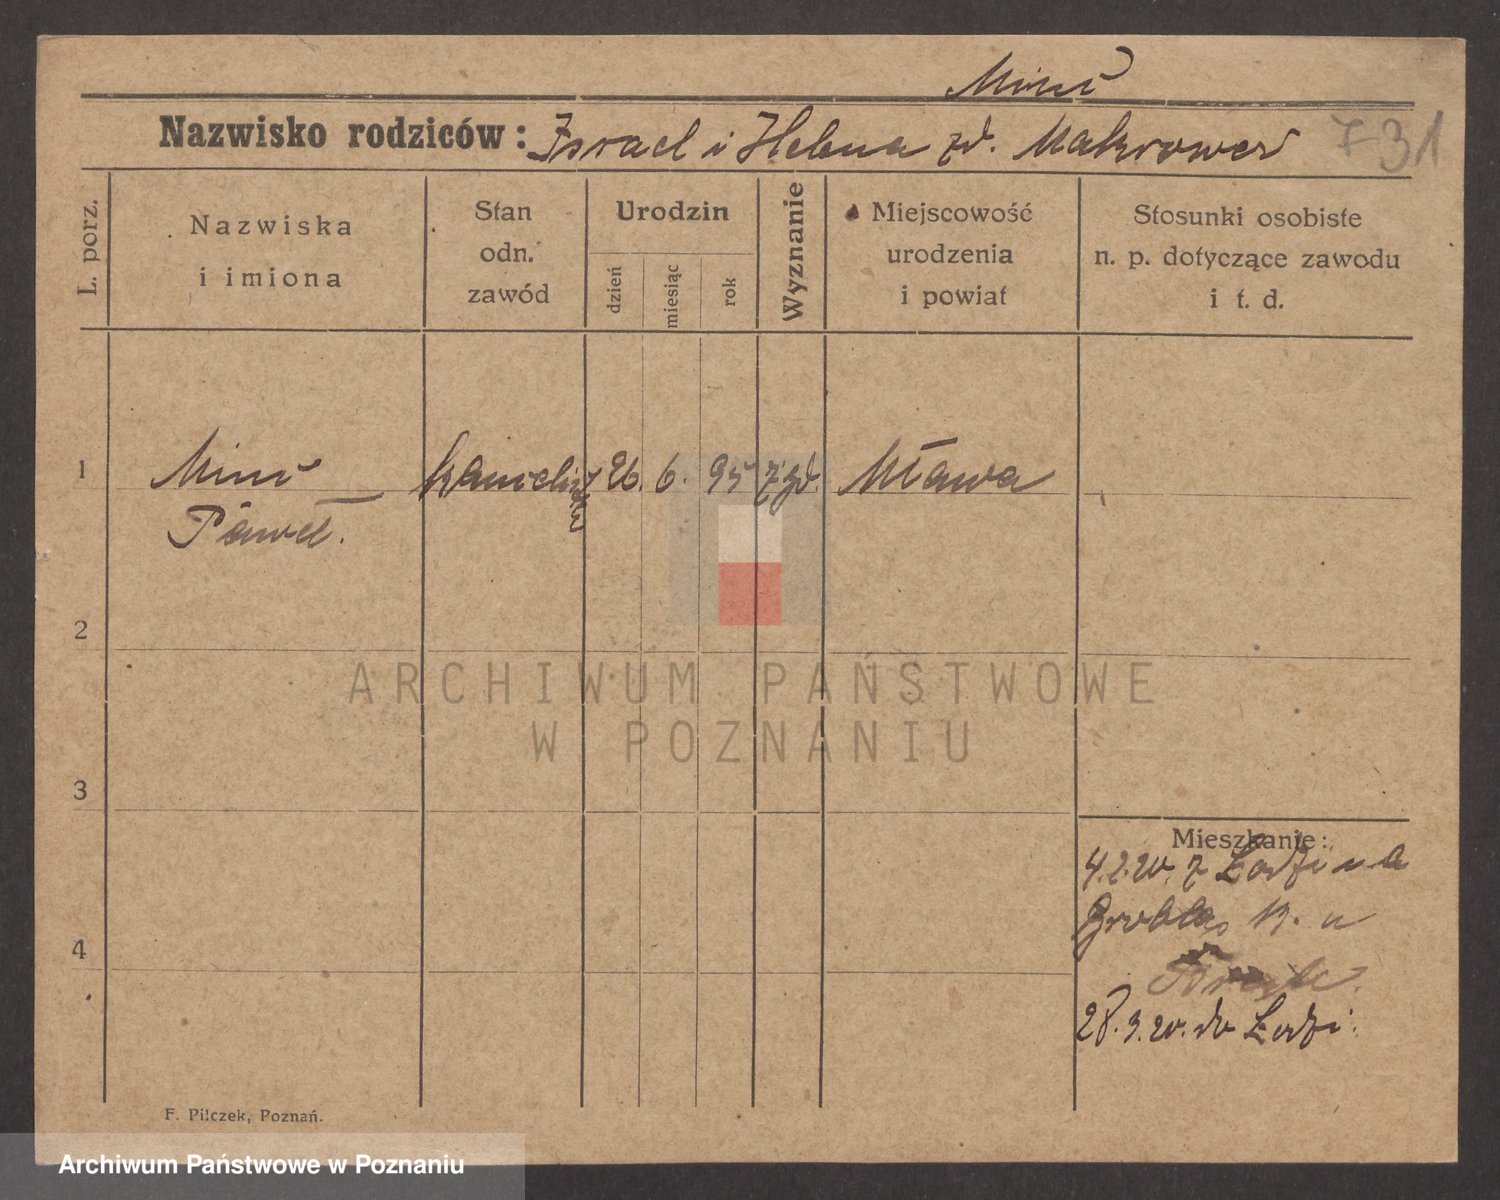 Minc
Nazwisko rodziców: Israel i Helena zd. Makrower
731
L. porz.
Nazwiska
i imiona
Stan
odn.
zawód
Urodzin
dzień
miesiąc
rok
Wyznanie
Miejscowość
urodzenia
i powiat
Stosunki osobiste
n. p. dotyczące zawodu
i t. d.
1
Minc
Paweł.
26. 6. 95 żyd. Mława
2
3
4
ARCHIWUM PAŃSTWOWE
W POZNANIU
Mieszkanie:
4.2.20. z Łodzi na
Grobla, u
28.3.20. do Łodzi.
F. Pilczek, Poznań.
Archiwum Państwowe w Poznaniu